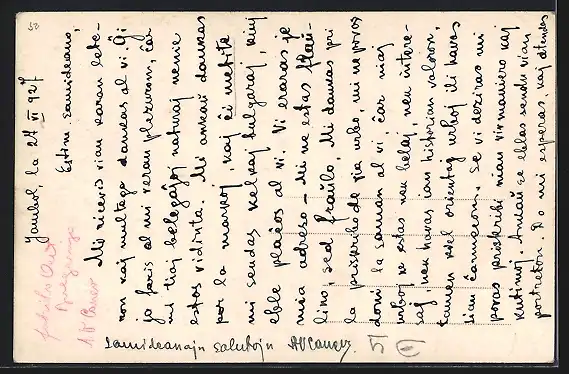 Yambol, la 27 VI 927
Estim. samideano,
Mi ricevis vian karan lete-
ron kaj multege dankas al vi. Ĝi
ja faris al mi veran plezuron, ĉar
mi tiaj belegajoj naturaj nenie
estas vidinta. Mi ankaŭ dankas
por la markoj, kaj ĉi metite
mi sendas kelkaj bulgaraj, kiuj
eble plaĉos al vi. Vi eraras je
mia adreso – Mi ne estas fraŭ-
lino, sed fraŭlo. Mi dankas pri
la priskribo de via urbo, mi ne povas
doni la saman al vi, ĉar niaj
urboj ne estas nek belaj, nek intere-
saj, nek havas ian historian valoron,
tamen kiel orientaj urboj ili havas
sian ĉarmecon. Se vi deziras mi
povas priskribi nian vivmanieron kaj
kutimoj. Ankaŭ se eblas sendu vian
portreton. Do mi esperas, kaj atendas
Samideanajn salutojn
52